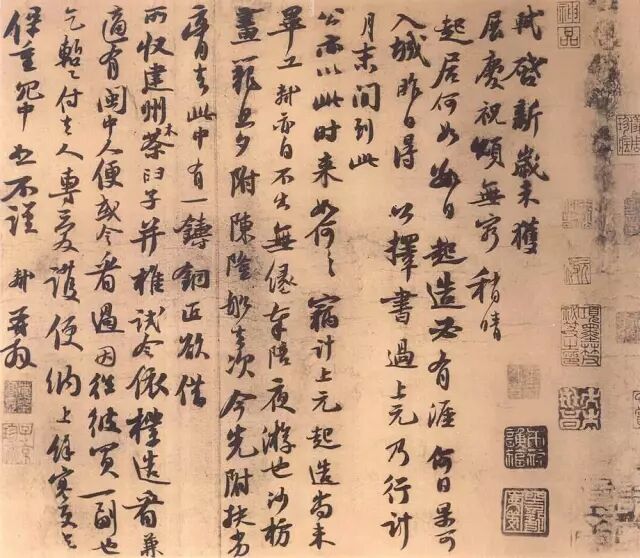 軾啓新歲未獲
展慶祝頌無窮稍晴
起居何如數日起造必有涯何日果可
入城昨日得公擇書過上元乃行計
月末間到此
公亦以此时来如何〻竊計上元起造尚未
畢工軾亦自不出無緣奉陪夜游也沙枋
畫籠旦夕附陳隆船去次今先附扶劣
膏去此中有一鑄銅匠欲借
所收建州木茶臼子并椎試令依樣造看兼
適有閩中人便或令看過因往彼買一副也
乞暫付去人專愛護便納上餘寒更乞
保重冗中恕不謹 軾再拜
神品